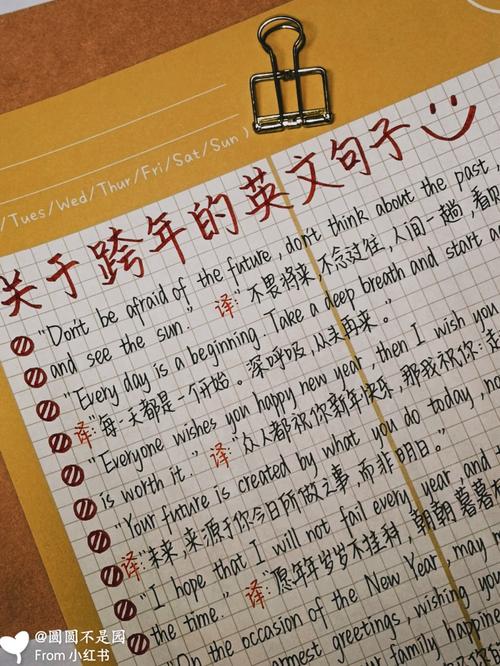 /Tues/Wed/Thur/Fri/Sat/Sun)
关于跨年的英文句子
"Don't be afraid of the future, don't think about the past
and see the sun." 译:"不畏将来,不念过往,人间一趟,看
"Every day is a beginning. Take a deep breath and start
译:"每一天都是一个开始。深呼吸,从头再来。"
"Everyone wishes you happy new year, then I wish you
is worth it." 译:"众人都祝你新年快乐,那我祝你:
"Your future is created by what you do today, no
译:"未来,来源于你今日所做之事,而非明日。"
"I hope that I will not fail every year, and
the time." 译:"愿年年岁岁不挂科,朝朝暮暮
"On the occasion of the New Year, may
greetings, wishing you
family happin
@圆圆不是园
From 小红书